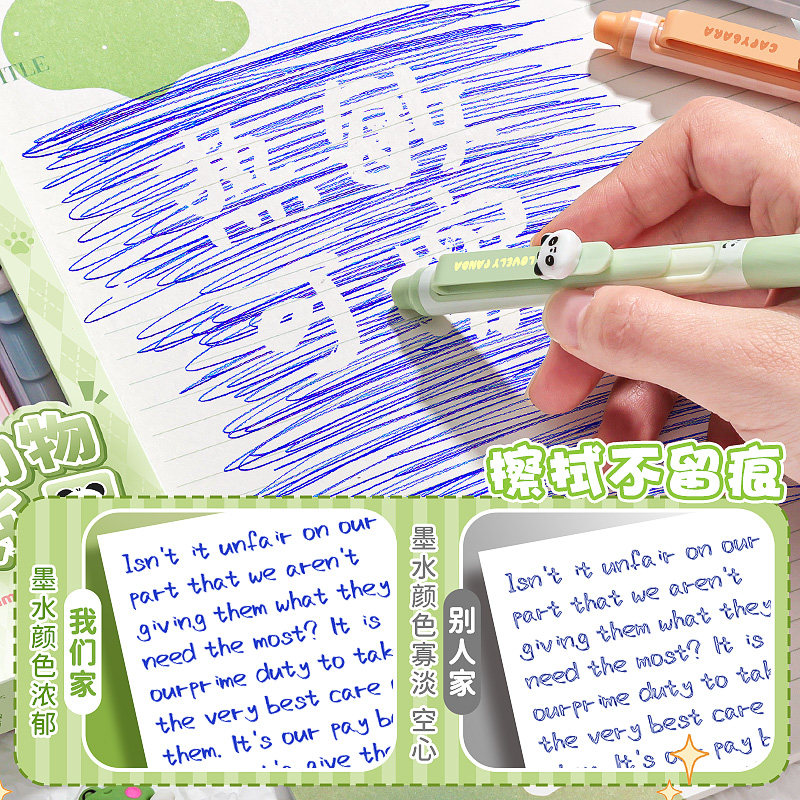 CAPYBARA
LOVELY PANDA
物
擦拭不留痕
墨水颜色浓郁
我们家
Isn't it unfair on our
part that we aren't
giving them what they
need the most? It is
ourprime duty to tak
the very best care
them. It's our pay b
give the
墨水颜色寡淡 空心
别人家
Isn't it unfair on our
part that we aren't
giving them what they
need the most? It is
ourprime duty to tak
the very best care
them. It's our pay b